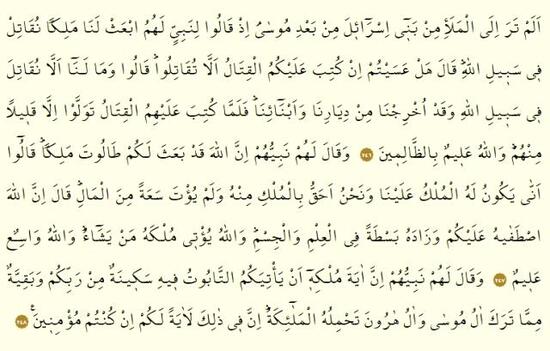 اَلَمْ تَرَ اِلَى الْمَلَاِ مِنْ بَنٖٓى اِسْرَٓائٖلَ مِنْ بَعْدِ مُوسٰىۘ اِذْ قَالُوا لِنَبِيٍّ لَهُمُ ابْعَثْ لَنَا مَلِكًا نُقَاتِلْ
فٖى سَبٖيلِ اللّٰهِؕ قَالَ هَلْ عَسَيْتُمْ اِنْ كُتِبَ عَلَيْكُمُ الْقِتَالُ اَلَّا تُقَاتِلُواؕ قَالُوا وَمَا لَنَٓا اَلَّا نُقَاتِلَ
فٖى سَبٖيلِ اللّٰهِ وَقَدْ اُخْرِجْنَا مِنْ دِيَارِنَا وَاَبْنَٓائِنَاؕ فَلَمَّا كُتِبَ عَلَيْهِمُ الْقِتَالُ تَوَلَّوْا اِلَّا قَلٖيلًا
مِنْهُمْؕ وَاللّٰهُ عَلٖيمٌ بِالظَّالِمٖينَ ﴿٢٤٦﴾ وَقَالَ لَهُمْ نَبِيُّهُمْ اِنَّ اللّٰهَ قَدْ بَعَثَ لَكُمْ طَالُوتَ مَلِكًاؕ قَالُٓوا
اَنّٰى يَكُونُ لَهُ الْمُلْكُ عَلَيْنَا وَنَحْنُ اَحَقُّ بِالْمُلْكِ مِنْهُ وَلَمْ يُؤْتَ سَعَةً مِنَ الْمَالِؕ قَالَ اِنَّ اللّٰهَ
اصْطَفٰيهُ عَلَيْكُمْ وَزَادَهُ بَسْطَةً فِى الْعِلْمِ وَالْجِسْمِؕ وَاللّٰهُ يُؤْتٖى مُلْكَهُ مَنْ يَشَٓاءُؕ وَاللّٰهُ وَاسِعٌ
عَلٖيمٌ ﴿٢٤٧﴾ وَقَالَ لَهُمْ نَبِيُّهُمْ اِنَّ اٰيَةَ مُلْكِهٖٓ اَنْ يَاْتِيَكُمُ التَّابُوتُ فٖيهِ سَكٖينَةٌ مِنْ رَبِّكُمْ وَبَقِيَّةٌ
مِمَّا تَرَكَ اٰلُ مُوسٰى وَاٰلُ هٰرُونَ تَحْمِلُهُ الْمَلٰٓئِكَةُؕ اِنَّ فٖى ذٰلِكَ لَاٰيَةً لَكُمْ اِنْ كُنْتُمْ مُؤْمِنٖينَࣖ ﴿٢٤٨﴾